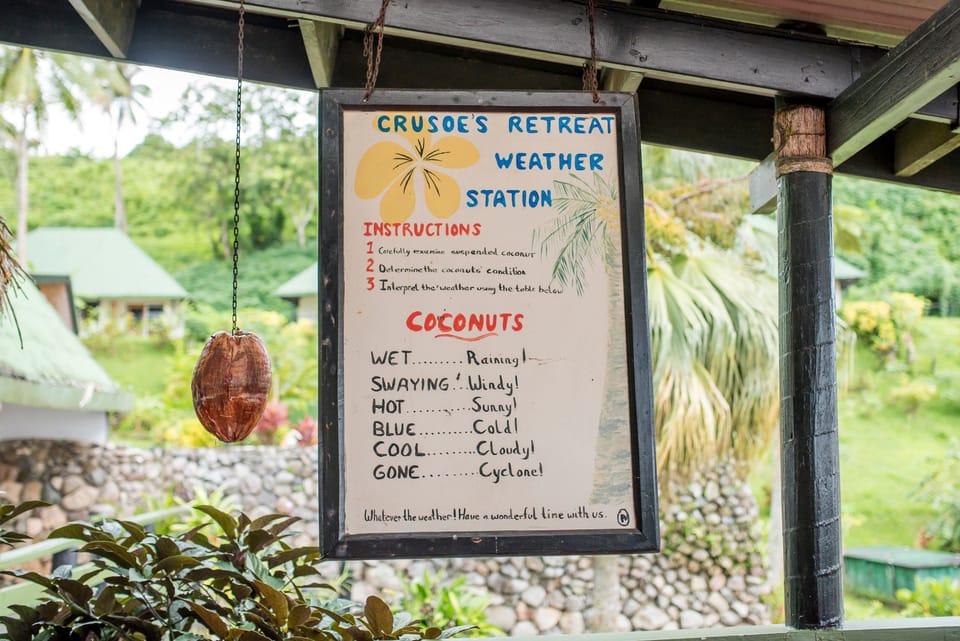 CRUSOE'S RETREAT
WEATHER
STATION
INSTRUCTIONS
1 Carefully examine suspended coconut
2 Determine the coconuts' condition
3 Interpret the weather using the table below
COCONUTS
WET.........Raining!
SWAYING.'..Windy!
HOT..........Sunny!
BLUE.........Cold!
COOL........Cloudy!
GONE........Cyclone!
Whatever the weather! Have a wonderful time with us.